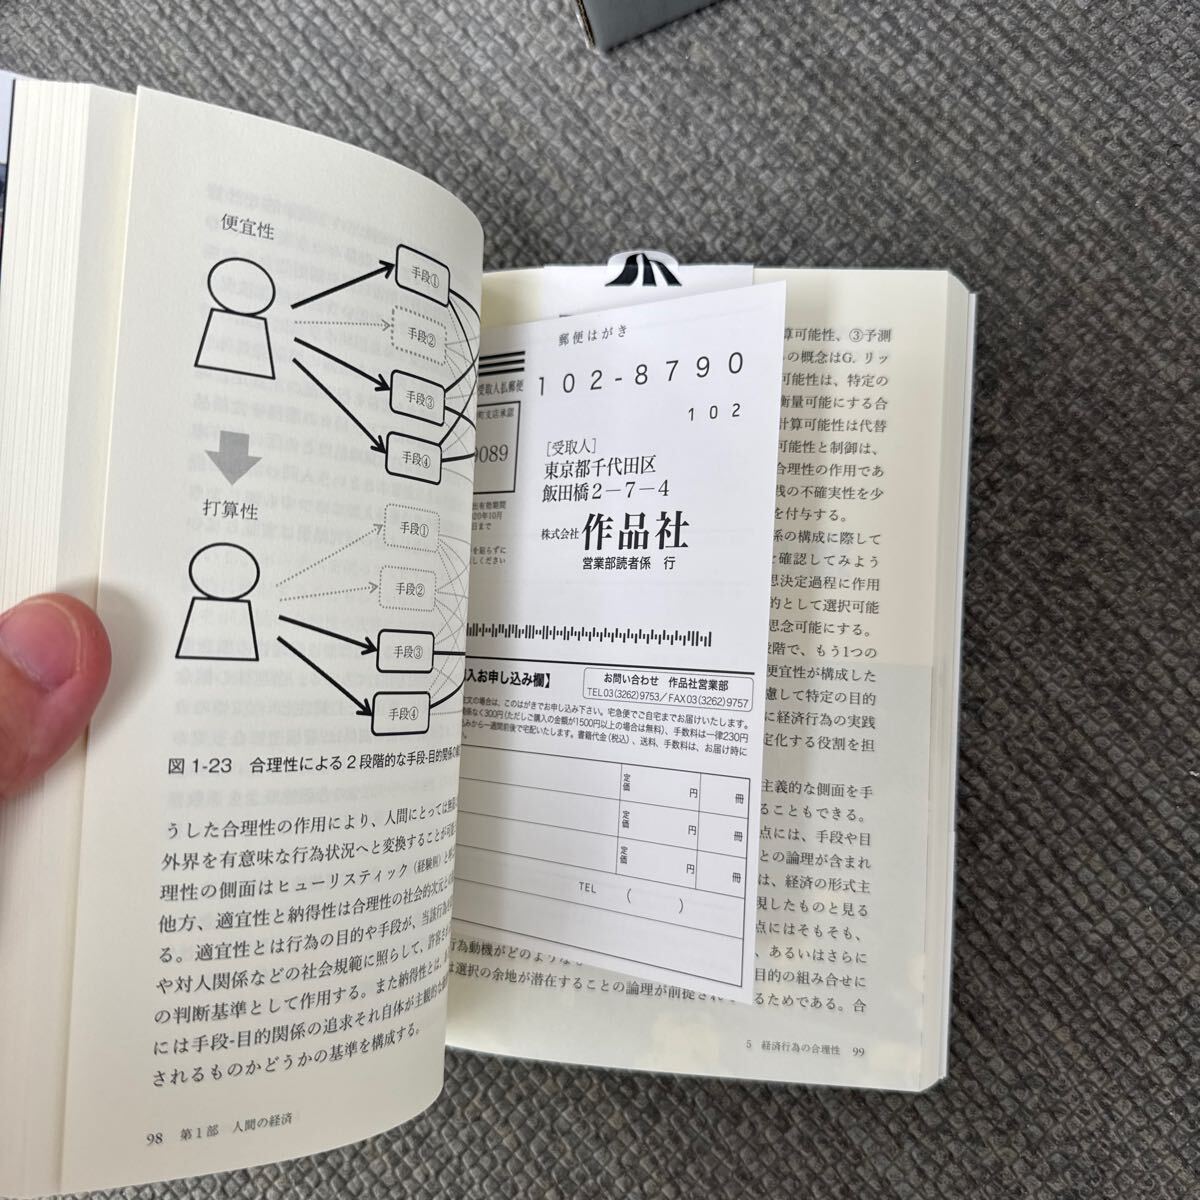 便宜性
手段①
手段②
手段③
手段④
打算性
手段①
手段②
手段③
手段④
図 1-23 合理性による2段階的な手段-目的関係の
うした合理性の作用により、人間にとっては無
外界を有意味な行為状況へと変換することが可
理性の側面はヒューリスティック(経験則)と
他方、適宜性と納得性は合理性の社会的次元と
る。適宜性とは行為の目的や手段が、当該行為
や対人関係などの社会規範に照らして、許容
の判断基準として作用する。また納得性とは、
には手段-目的関係の追求それ自体が主観的な
されるものかどうかの基準を構成する。
98 第1部 人間の経済
郵便はがき
102-8790
102
受取人払郵便
町支店承認
9089
出有効期間
20年10月
日まで
を貼らずに
しください
[受取人]
東京都千代田区
飯田橋2-7-4
株式会社 作品社
営業部読者係 行
入お申し込み欄】
お問い合わせ 作品社営業部
TEL 03(3262)9753/FAX03(3262)9757
文の場合は、このはがきでお申し込み下さい。宅急便でご自宅までお届けいたします。
関係なく300円(ただしご購入の金額が1500円以上の場合は無料)、手数料は一律230円
込みから一週間前後で宅配いたします。書籍代金(税込)、送料、手数料は、お届け時に
い。
定価 円 冊
定価 円 冊
定価 円 冊
TEL ( )
算可能性、③予測
の概念はG. リッ
可能性は、特定の
衡量可能にする合
計算可能性は代替
可能性と制御は、
合理性の作用であ
践の不確実性を少
を付与する。
係の構成に際して
を確認してみよう
思決定過程に作用
的として選択可能
思念可能にする。
段階で、もう1つの
便宜性が構成した
慮して特定の目的
に経済行為の実践
定化する役割を担
主義的な側面を手
ることもできる。
点には、手段や目
との論理が含まれ
は、経済の形式主
現したものと見る
点にはそもそも、
、あるいはさらに
行為動機がどのような
目的の組み合せに
は選択の余地が潜在することの論理が前提され
るためである。合
5 経済行為の合理性 99